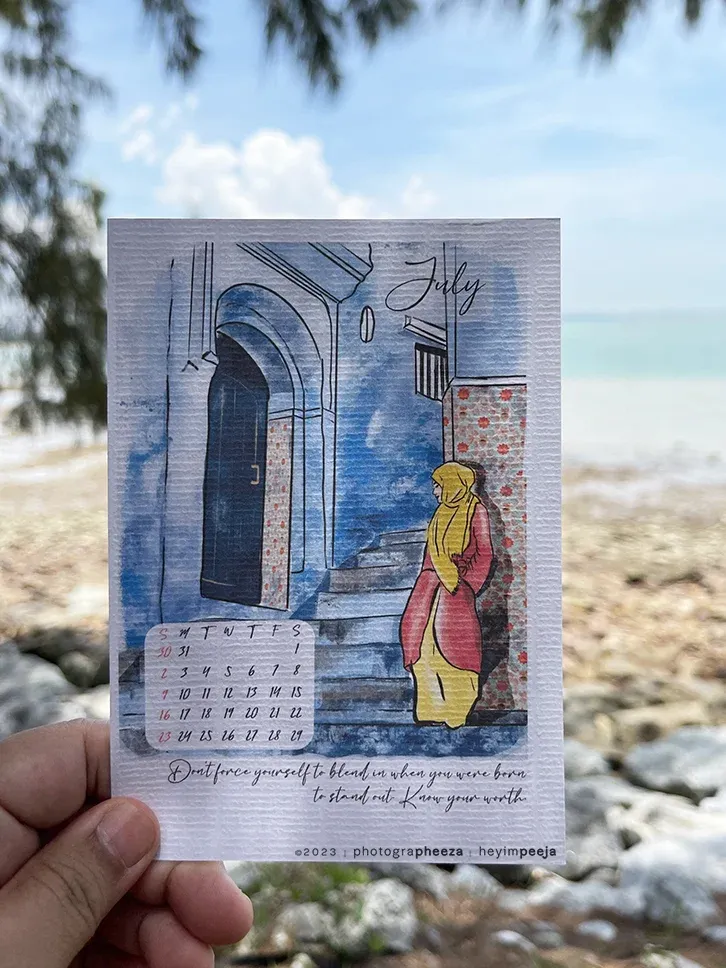 July
S M T W T F S
30 31 1
2 3 4 5 6 7 8
9 10 11 12 13 14 15
16 17 18 19 20 21 22
23 24 25 26 27 28 29
Don't force yourself to blend in when you were born
to stand out. Know your worth.
©2023 | photographeeza | heyimpeeja